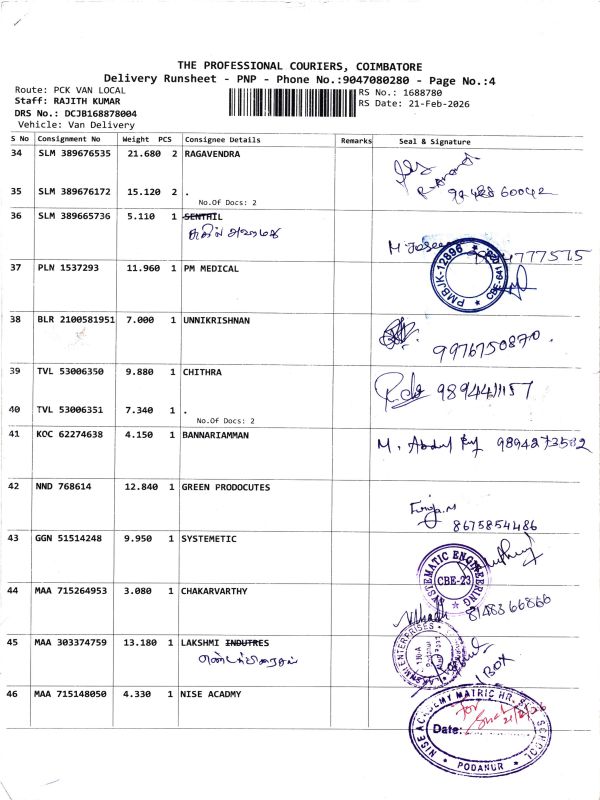 THE PROFESSIONAL COURIERS, COIMBATORE
Delivery Runsheet - PNP - Phone No.:9047080280 - Page No.:4
Route: PCK VAN LOCAL
Staff: RAJITH KUMAR
DRS No.: DCJB168878004
Vehicle: Van Delivery
RS No.: 1688780
RS Date: 21-Feb-2026
S No Consignment No Weight PCS Consignee Details Remarks Seal & Signature
34 SLM 389676535 21.680 2 RAGAVENDRA
35 SLM 389676172 15.120 2 .
No.Of Docs: 2
36 SLM 389665736 5.110 1 SENTHIL
37 PLN 1537293 11.960 1 PM MEDICAL
PMBJK-12896
38 BLR 2100581951 7.000 1 UNNIKRISHNAN
9976750870
39 TVL 53006350 9.880 1 CHITHRA
9894441157
40 TVL 53006351 7.340 1 .
No.Of Docs: 2
41 KOC 62274638 4.150 1 BANNARIAMMAN
M. Abdul 9894273582
42 NND 768614 12.840 1 GREEN PRODOCUTES
8675854486
43 GGN 51514248 9.950 1 SYSTEMETIC
SYSTEMATIC ENGINEERING
CBE-23
44 MAA 715264953 3.080 1 CHAKARVARTHY
8148366866
45 MAA 303374759 13.180 1 LAKSHMI INDUTRES
LAKSHMI ENTERPRISES
1 BOX
46 MAA 715148050 4.330 1 NISE ACADMY
NISE ACADEMY MATRIC HR. SEC. SCHOOL
for
21/2/26
Date:
PODANUR